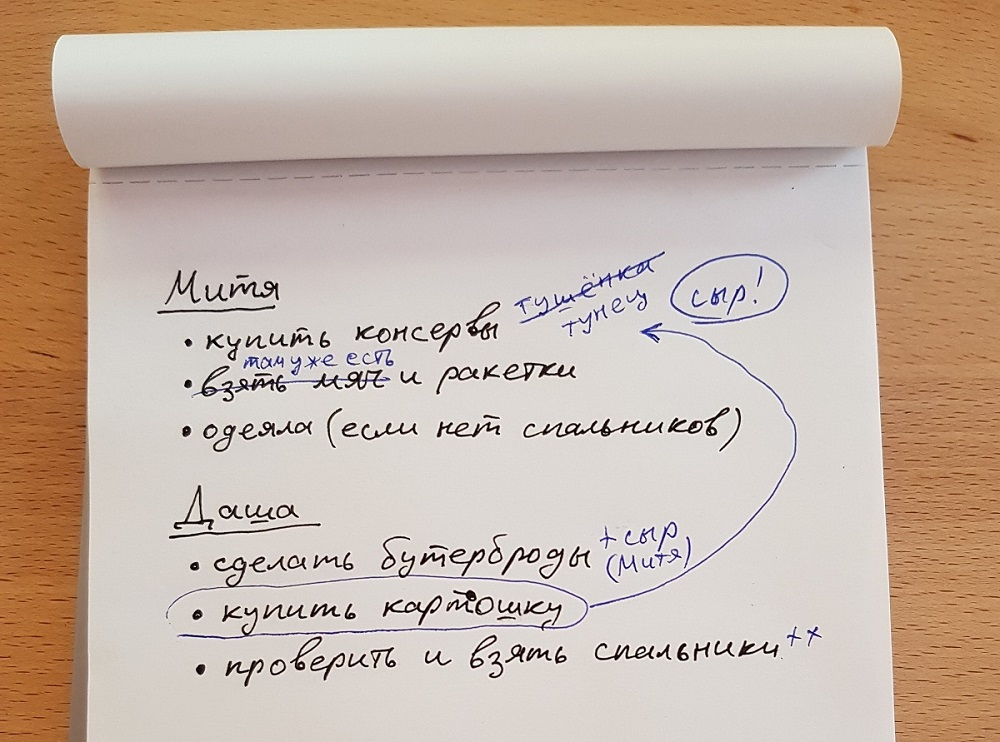 Митя
• купить консервы тушёнка сыр!
тунец
там уже есть
• взять мяч и ракетки
• одеяла (если нет спальников)
Даша
• сделать бутерброды + сыр
(Митя)
• купить картошку
• проверить и взять спальники ++